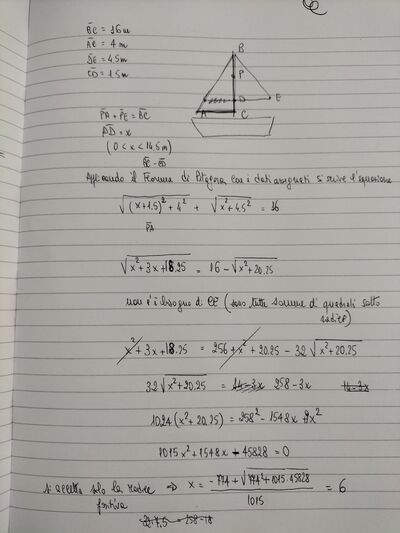 BC = 16 m
AC = 4 m
DE = 4.5 m
CD = 1.5 m
B
P
D
E
A
C
PA + PE = BC
PD = x
(0 < x < 14.5 m)
BC - CD
Applicando il Teorema di Pitagora con i dati assegnati si scrive l'equazione
√((x+1.5)² + 4²) + √(x² + 4.5²) = 16
PA
√(x² + 3x + 18.25) = 16 - √(x² + 20.25)
non c'è bisogno di CE (sono tutte somme di quadrati sotto
radice)
x² + 3x + 18.25 = 256 + x² + 20.25 - 32√(x² + 20.25)
32√(x² + 20.25) = 14 - 3x 258 - 3x 14 - 3x
1024(x² + 20.25) = 258² - 1548x + 9x²
1015x² + 1548x - 45828 = 0
si accetta solo la radice ⇒ x = (-774 + √(774² + 1015·45828))/1015 = 6
positiva
32·7.5 = 258-18